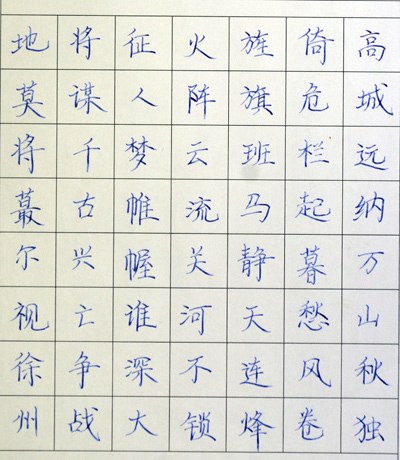 高城远纳万山秋独
倚危栏起暮愁风卷
旌旗班马静天连烽
火阵云流关河不锁
征人梦帷幄谁深大
将谋千古兴亡争战
地莫将蕞尔视徐州